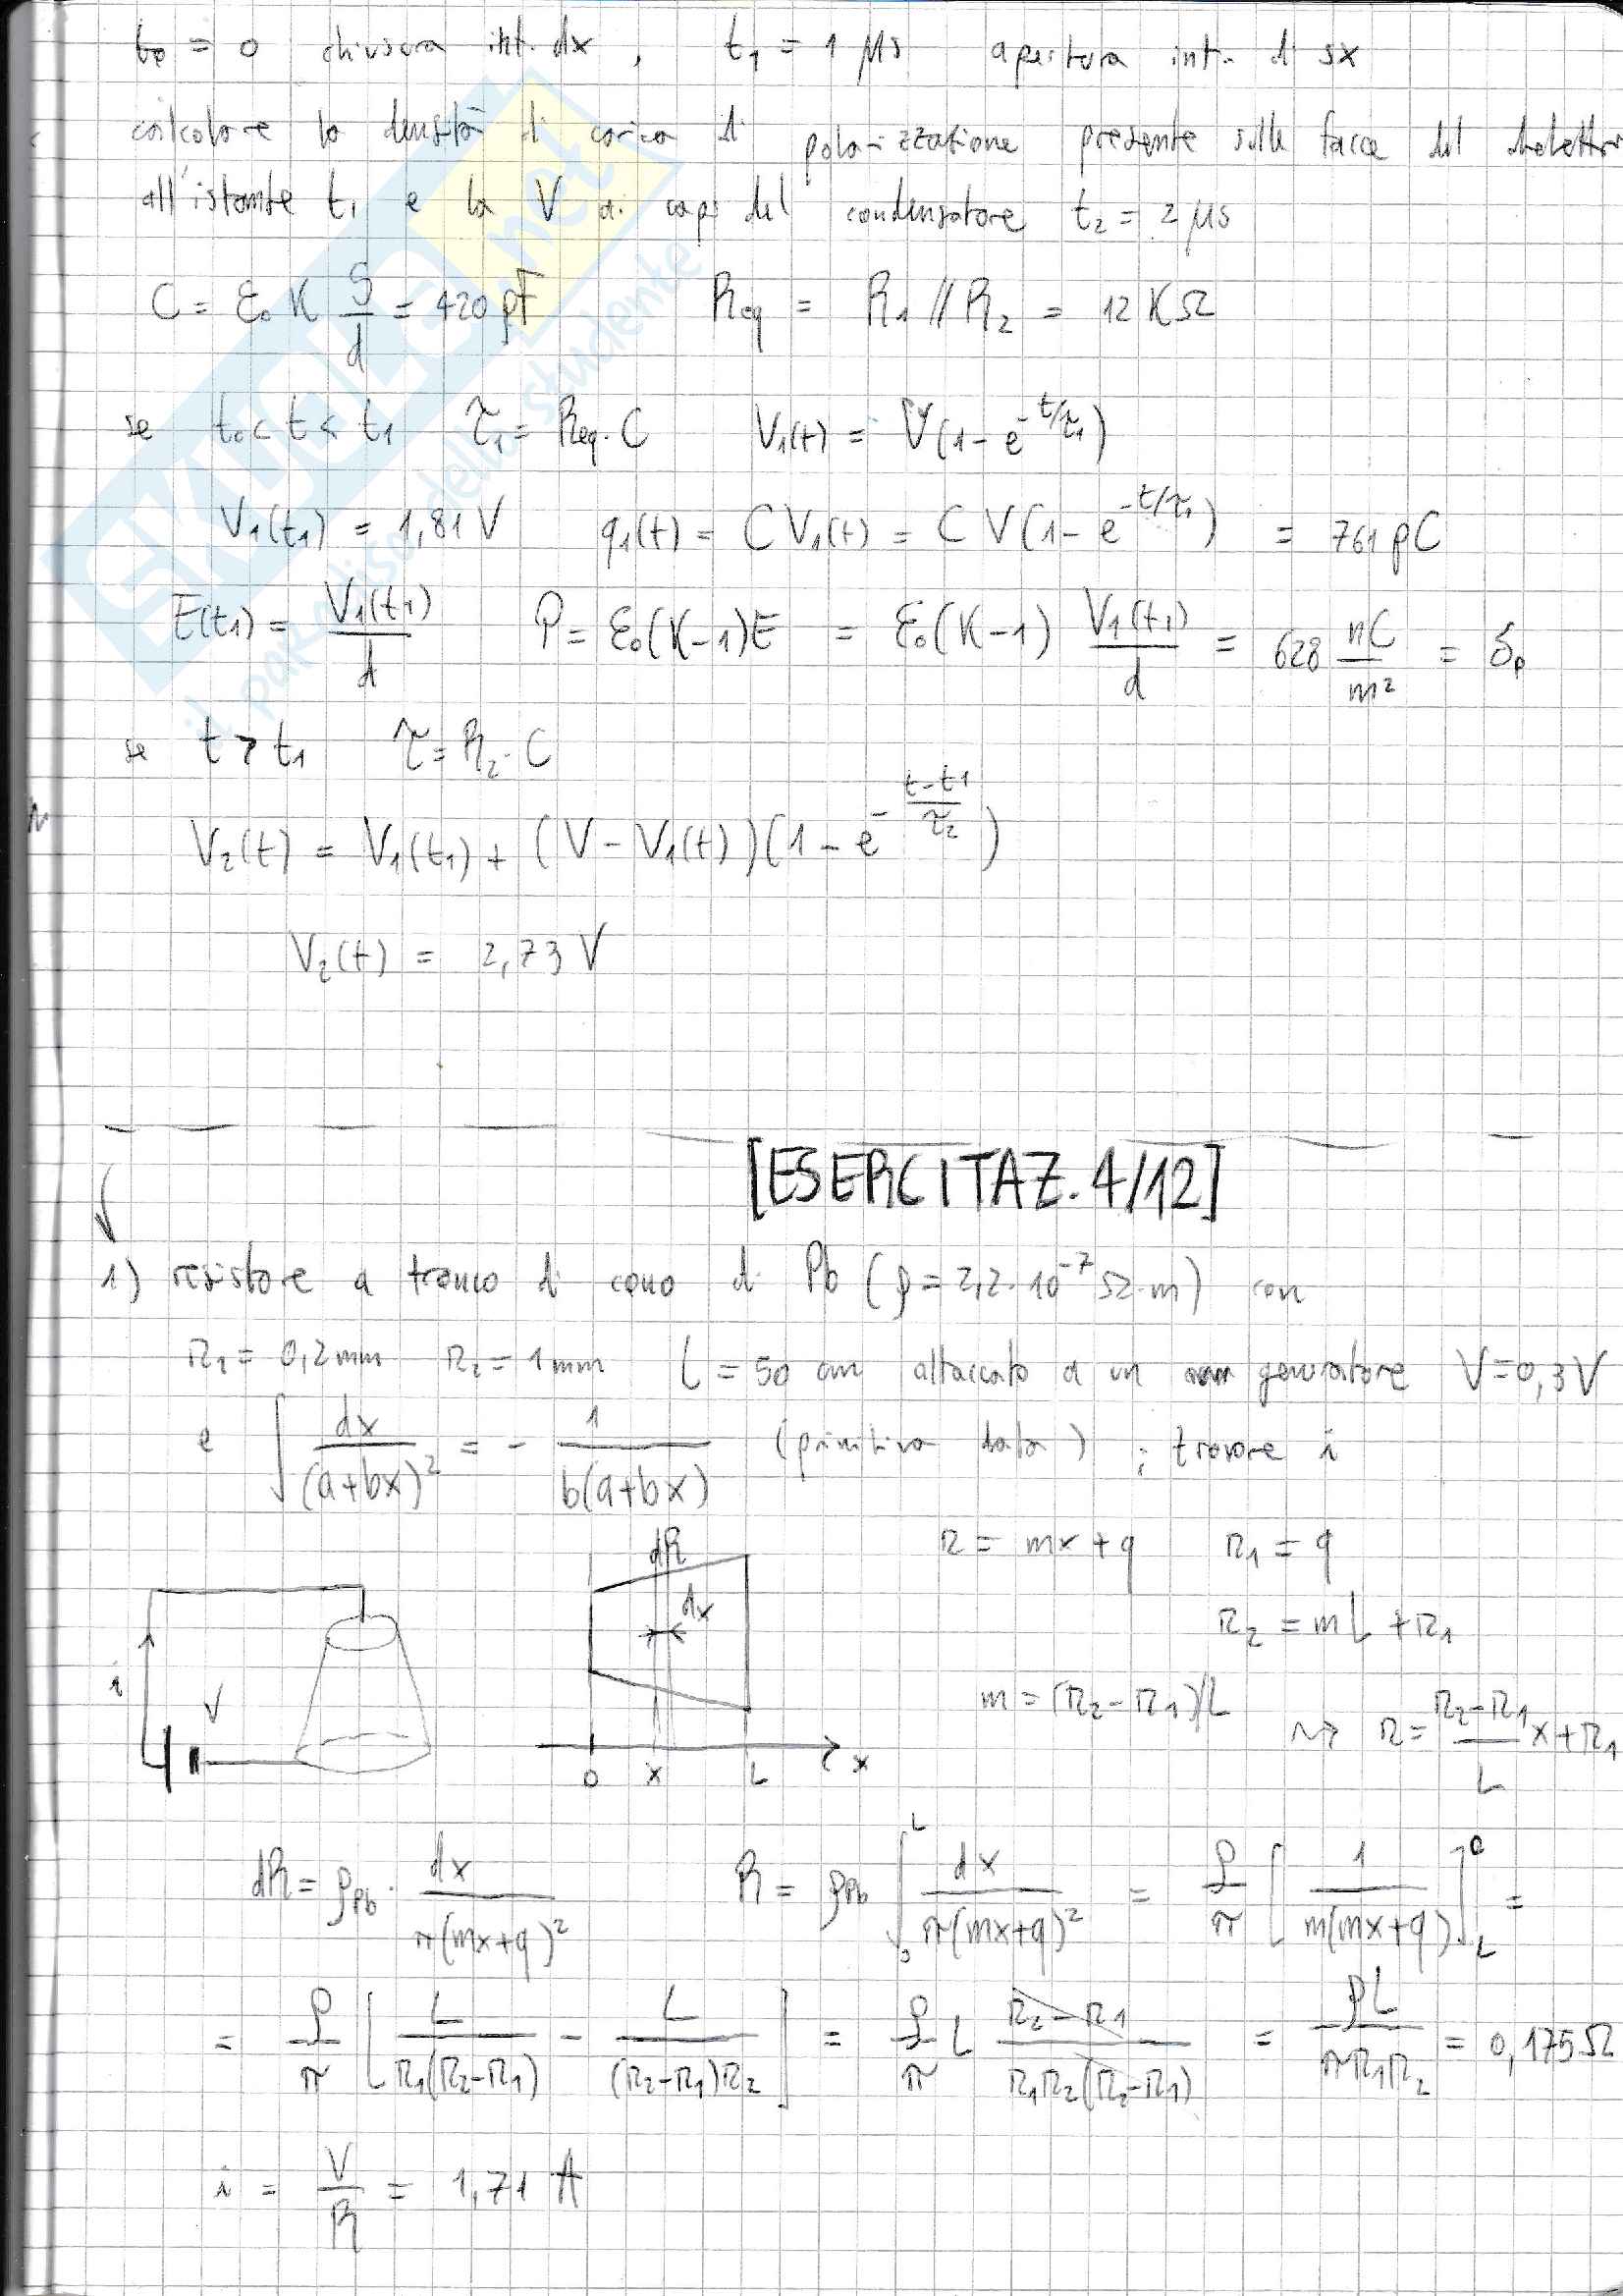 t₀ = 0 chiusura int. dx , t₁ = 1 μs apertura int. di sx
calcolare la densità di carica di polarizzazione presente sulle facce del dielettri
all'istante t₁ e la V ai capi del condensatore t₂ = 2 μs
C = ε₀ K S/d = 420 pF Req = R₁ // R₂ = 12 KΩ
se t₀ < t < t₁ τ₁ = Req · C V₁(t) = V(1 - e^(-t/τ₁))
V₁(t₁) = 1,81 V q₁(t) = C V₁(t) = C V(1 - e^(-t/τ₁)) = 761 pC
E(t₁) = V₁(t₁)/d P = ε₀(K-1)E = ε₀(K-1) V₁(t₁)/d = 628 nC/m² = δp
se t > t₁ τ = R₂ · C
V₂(t) = V₁(t₁) + (V - V₁(t))(1 - e^(-(t-t₁)/τ₂))
V₂(t) = 2,73 V
[ESERCITAZ. 4/12]
1) resistore a tronco di cono di Pb (ρ = 2,2 · 10⁻⁷ Ω·m) con
r₁ = 0,2 mm r₂ = 1 mm L = 50 cm attaccato a un generatore V = 0,3 V
e ∫ dx/(a+bx)² = - 1/(b(a+bx)) (primitiva data) ; trovare i
dR
dx
i
V
0 x L x
r = mx + q r₁ = q
r₂ = mL + r₁
m = (r₂ - r₁)/L ⇝ r = (r₂ - r₁)/L x + r₁
dR = ρPb · dx/(π(mx+q)²) R = ρPb ∫₀ᴸ dx/(π(mx+q)²) = ρ/π [1/(m(mx+q))]⁰_L =
= ρ/π [L/(r₁(r₂-r₁)) - L/((r₂-r₁)r₂)] = ρ/π L (r₂-r₁)/(r₁r₂(r₂-r₁)) = ρL/(πr₁r₂) = 0,175 Ω
i = V/R = 1,71 A
SKUOLA.net
il paradiso dello studente